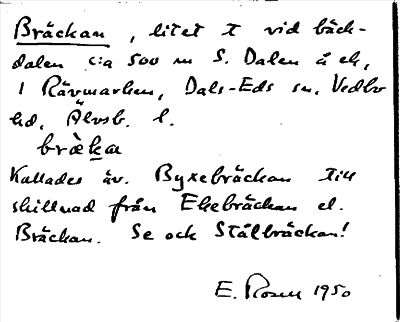 Bräckan, litet t vid bäck-
dalen c:a 500 m S. Dalen å ek,
1 Rävmarken, Dals-Eds sn, Vedbo
hd, Älvsb. l.
bræ̀ka
Kallades äv. Byxebräckan till
skillnad från Ekebräckan el.
Bräckan. Se ock Stålbräckan!
E. Rosen 1950